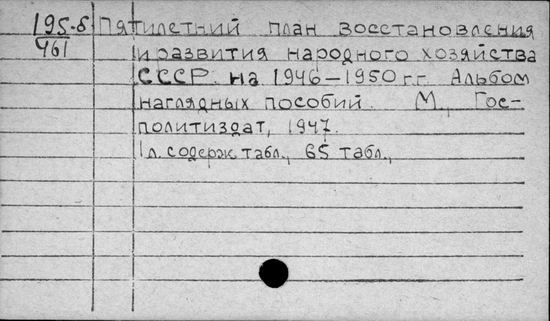 195-б Пятилетний план восстановления
461 и развития народного хозяйства
СССР на 1946-1950 гг. Альбом
наглядных пособий. М., Гос-
политиздат, 1947.
1 л. содерж. табл., 65 табл.,